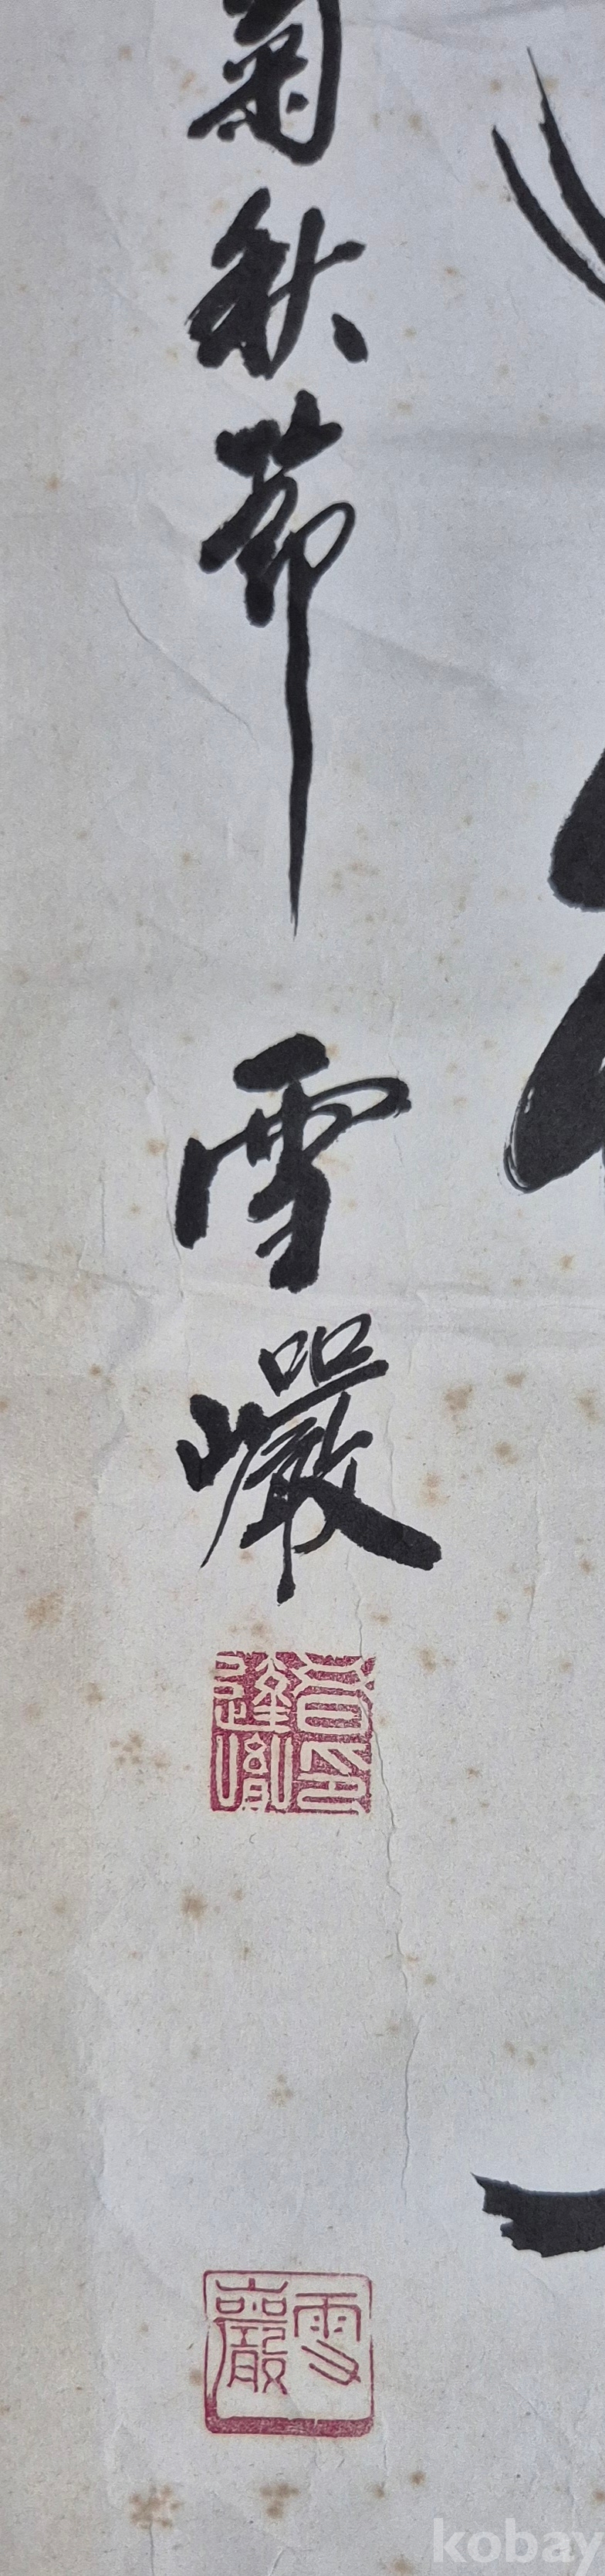 菊秋節
雪巖
雪巖
kobay